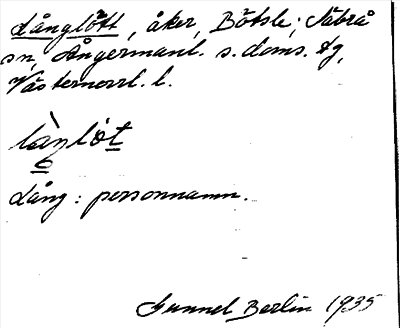 Långlött, åker, Bötsle; Säbrå
sn, Ångermanl. s. doms. tg,
Västernorrl. l.
làŋlòt
6
Lång: personnamn.
Gunnel Berlin 1935